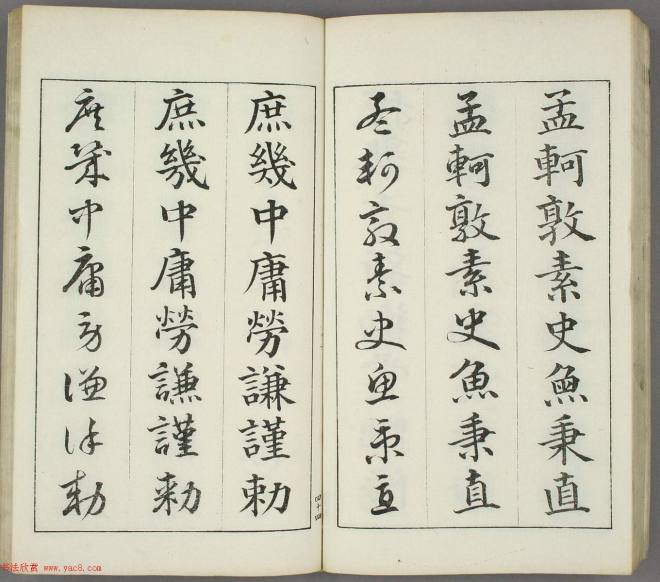 孟軻敦素史魚秉直
孟軻敦素史魚秉直
孟軻敦素史魚秉直
庶幾中庸勞謙謹勅
庶幾中庸勞謙謹勅
庶幾中庸勞謙謹勅
四十四
书法欣赏 www.yac8.com